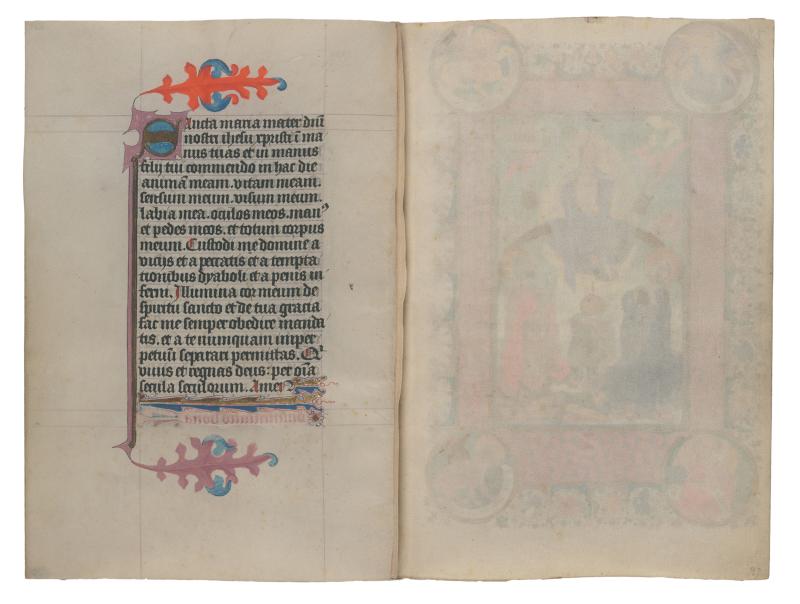 Sancta maria mater dñi
nostri ihesu xpristi ĩ ma
nus tuas et in manus
filij tui commendo in hac die
animã meam. vitam meam.
sensum meum. visum meum.
labia mea. oculos meos. man⁹
et pedes meos. et totum corpus
meum. Custodi me domine a
vicijs et a peccatis et a tempta
tionibus dyaboli et a penis in
ferni. Illumina cor meum de
spiritu sancto et de tua gracia
fac me semper obedire manda
tis. et a te numquam imper
petuũ separari permittas. Qr
viuis et regnas deus: per oĩa
secula seculorum. Amen